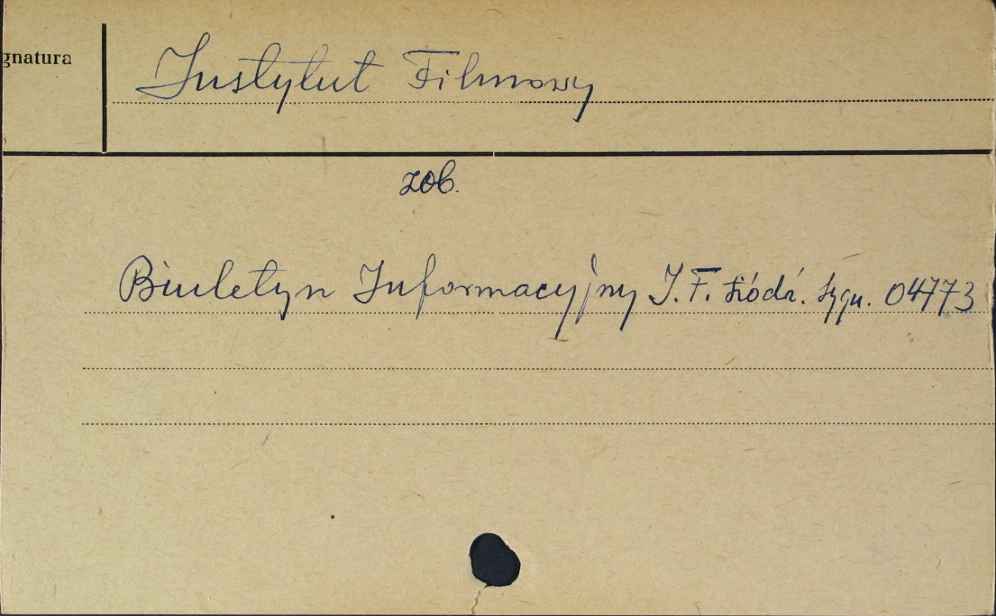 gnatura
Instytut Filmowy
zob.
Biuletyn Informacyjny I.F. Łódź. sygn. 04773